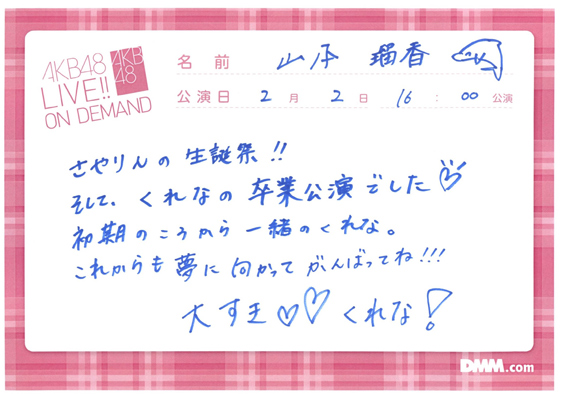 AKB48
LIVE!!
ON DEMAND
AKB
48
名前 山子 瑠香
公演日 2月 2日 16:00 公演
さやりんの生誕祭!!
そして、くれなの卒業公演でした♡
初期のころから一緒のくれな。
これからも夢に向かってがんばってね!!!
大すき♡♡くれな!
DMM.com